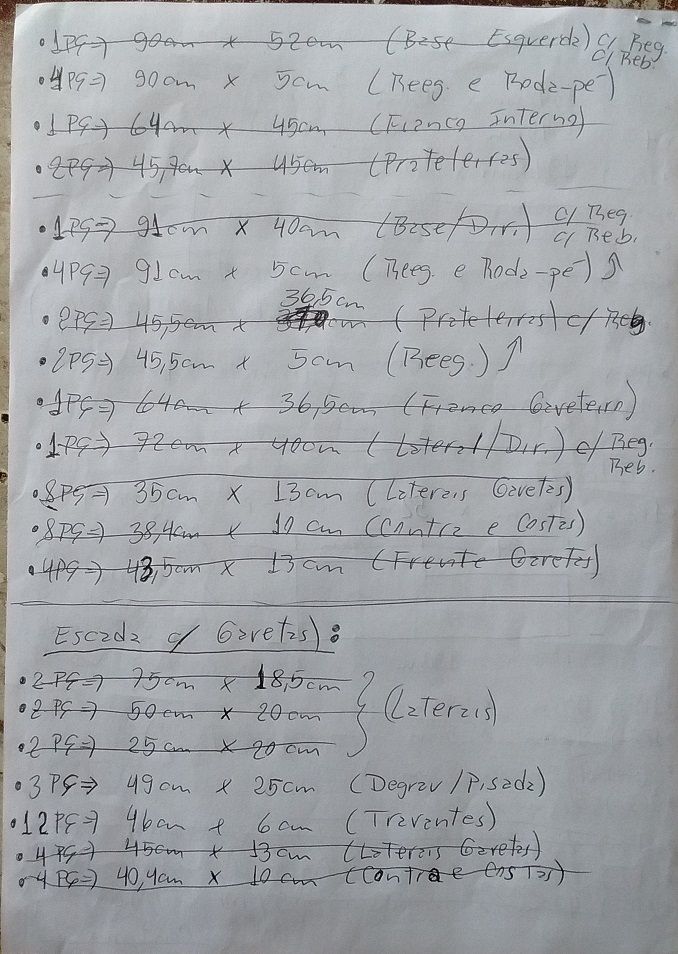 • 1PÇ⇒ 90cm x 52cm (Base Esquerda) c/ Reg.
c/ Reb.
• 4PÇ⇒ 90cm x 5cm (Reeg. e Roda-pé)
• 1PÇ⇒ 64cm x 45cm (Franco Interno)
• 2PÇ⇒ 45,7cm x 45cm (Prateleiras)
• 1PÇ⇒ 91cm x 40cm (Base/Dir.) c/ Reg.
c/ Reb.
• 4PÇ⇒ 91cm x 5cm (Reeg. e Roda-pé)
36,5cm
• 2PÇ⇒ 45,5cm x cm (Prateleiras) c/ Reg.
• 2PÇ⇒ 45,5cm x 5cm (Reeg.)
• 1PÇ⇒ 64cm x 36,5cm (Franco Gaveteiro)
• 1PÇ⇒ 72cm x 40cm (Lateral/Dir.) c/ Reg.
Reb.
• 8PÇ⇒ 35cm x 13cm (Laterais Gavetas)
• 8PÇ⇒ 38,4cm x 10cm (Contra e Costas)
• 4PÇ⇒ 43,5cm x 13cm (Frente Gavetas)
Escada c/ Gavetas):
• 2PÇ⇒ 75cm x 18,5cm
• 2PÇ⇒ 50cm x 20cm (Laterais)
• 2PÇ⇒ 25cm x 20cm
• 3PÇ⇒ 49cm x 25cm (Degrau/Pisada)
• 12PÇ⇒ 46cm x 6cm (Travantes)
• 4PÇ⇒ 45cm x 13cm (Laterais Gavetas)
• 4PÇ⇒ 40,4cm x 10cm (Contra e Costas)